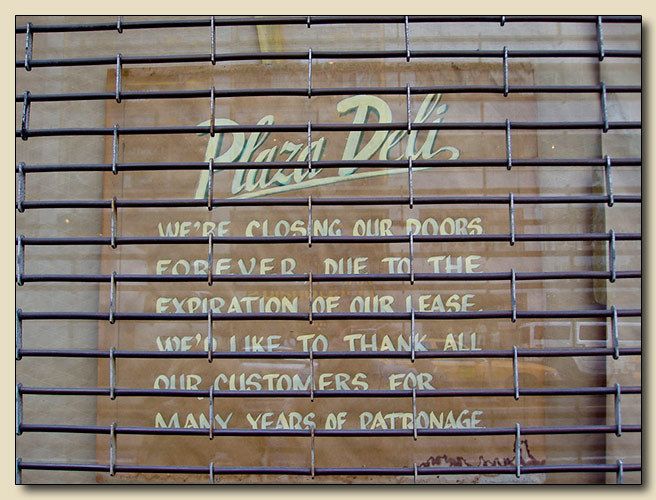 Plaza Deli
WE'RE CLOSING OUR DOORS
FOREVER DUE TO THE
EXPIRATION OF OUR LEASE.
WE'D LIKE TO THANK ALL
OUR CUSTOMERS FOR
MANY YEARS OF PATRONAGE